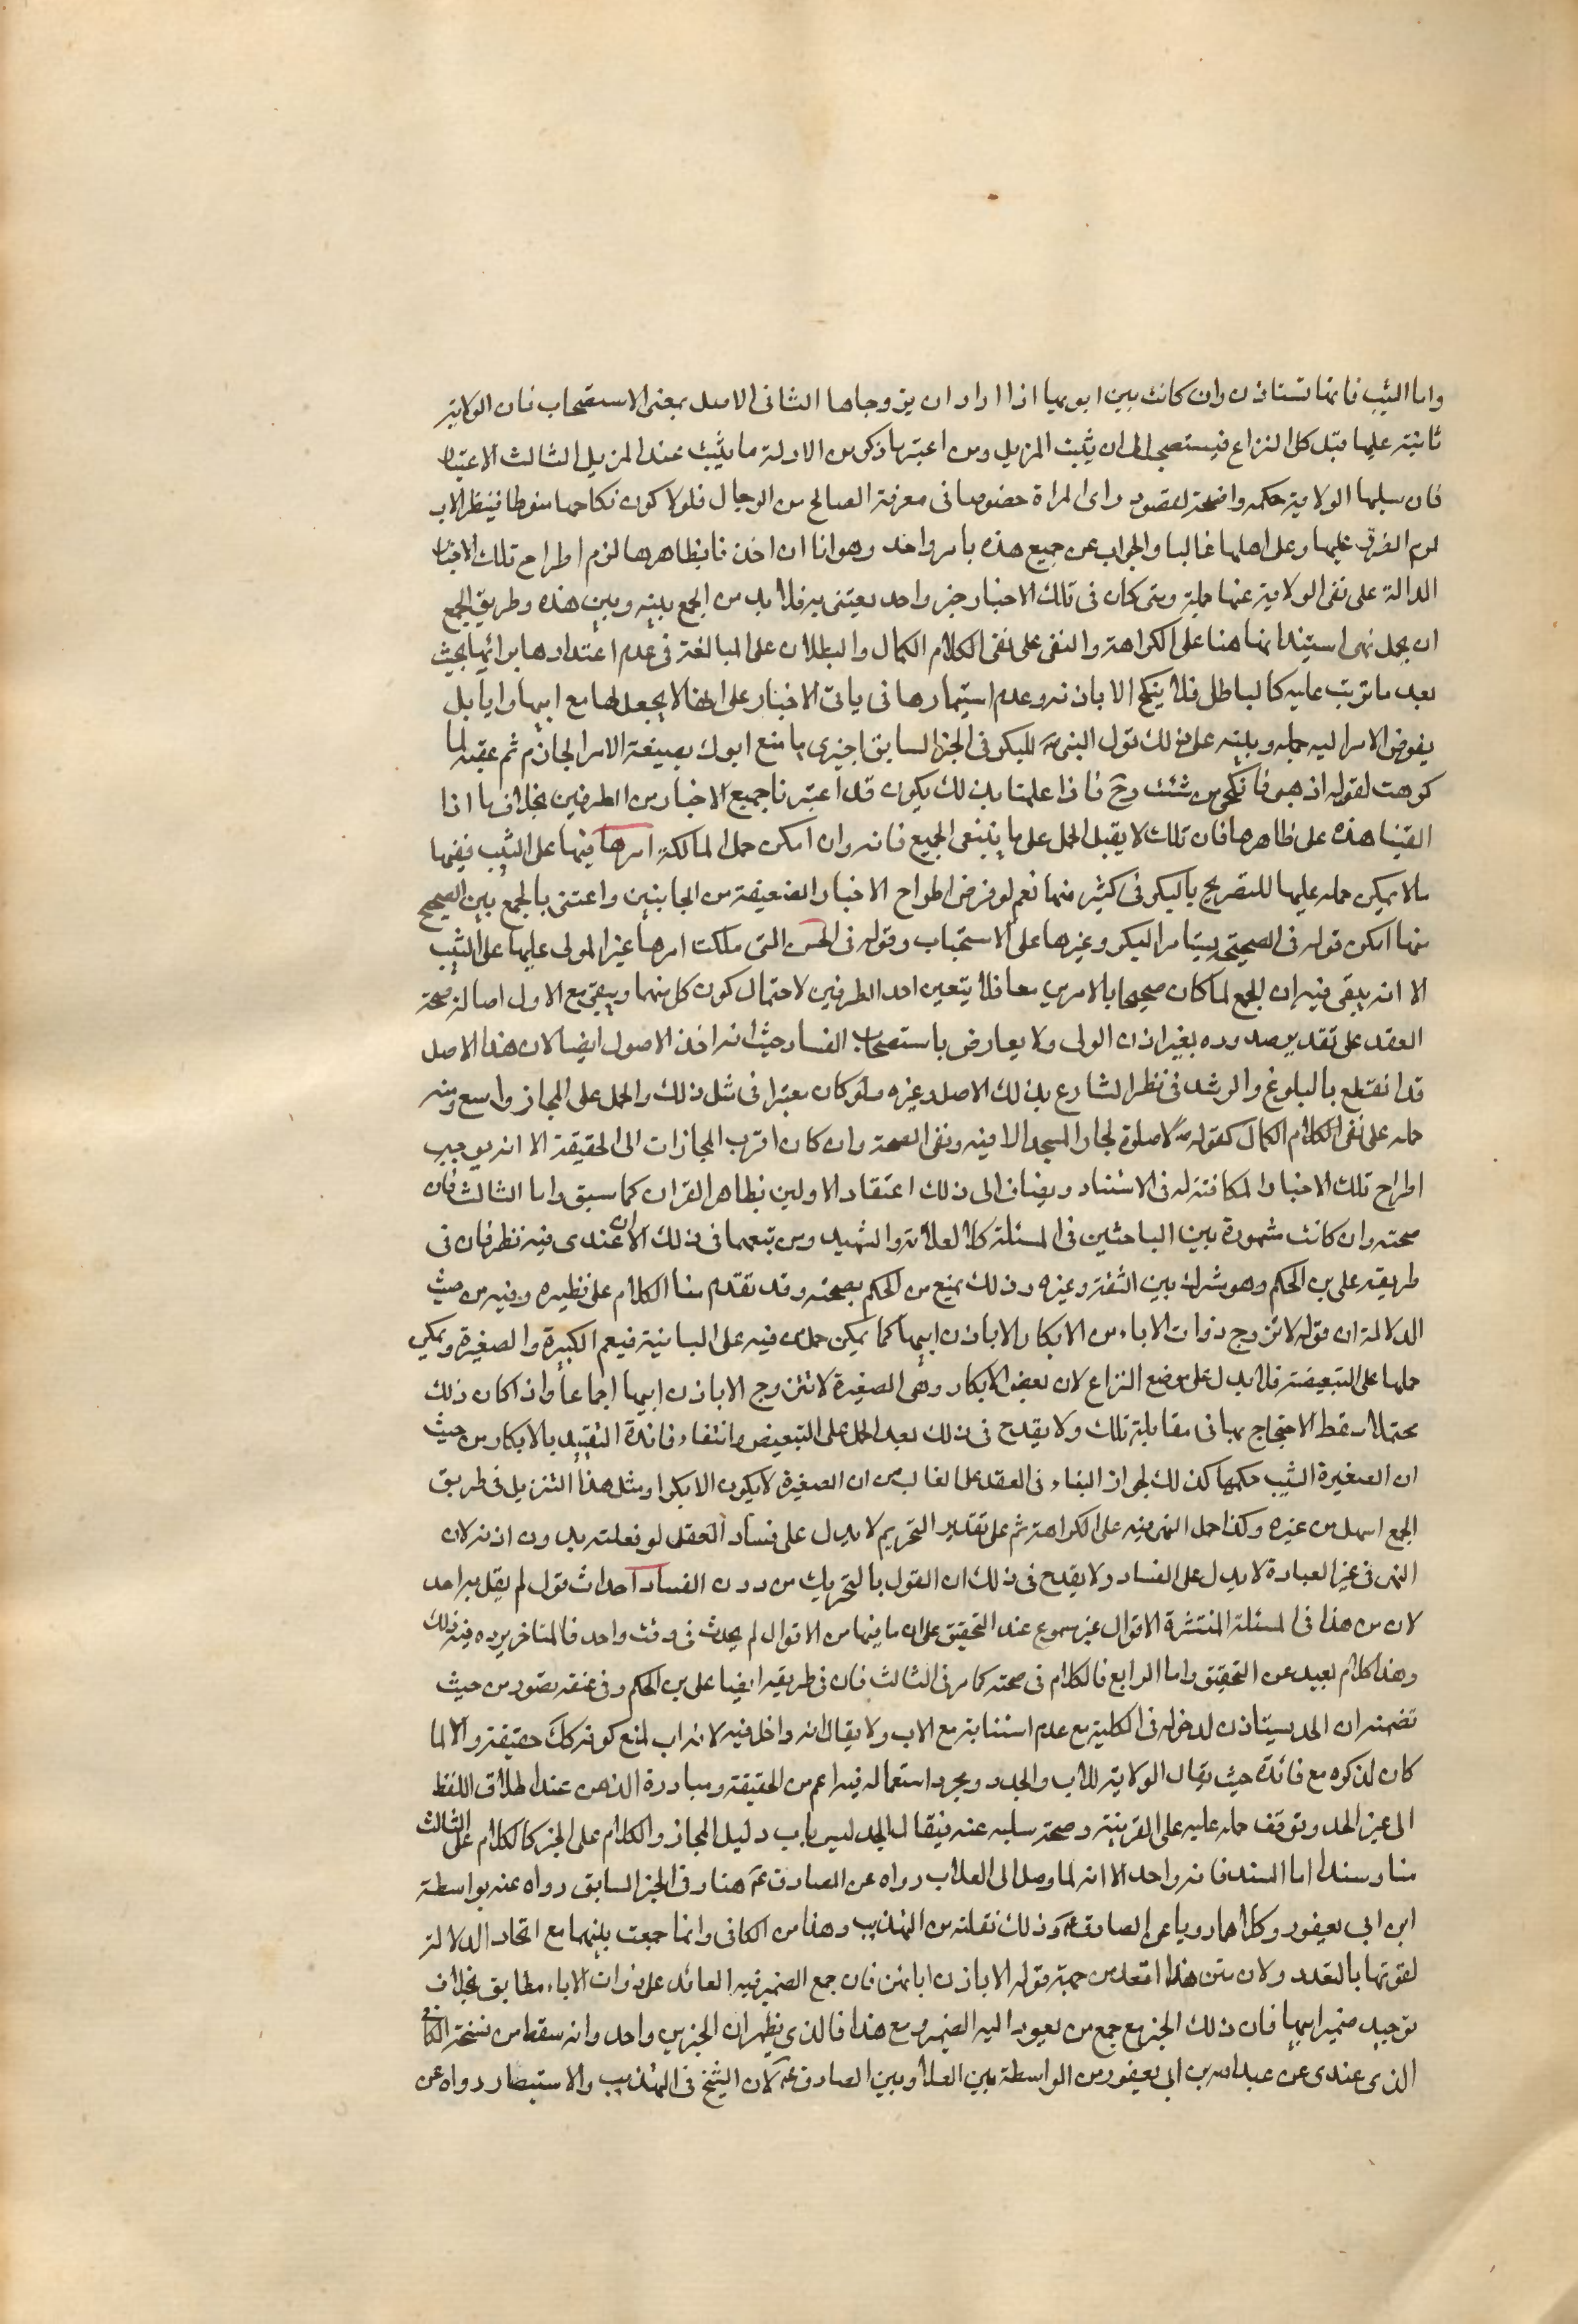 واما الثيب فانها تستاذن وان كانت بين ابويها اذا اراد ان يزوجاها الثانى الاصل بمعنى الاستصحاب فان الولاية
ثابتة عليها قبل كل النزاع فيستصحب الى ان يثبت المزيل ومن اعتبر ما ذكر من الادلة ما يثبت عنده المزيل الثالث الاعتبار
فان سلبها الولاية حكمه واضحة لقصور راى المراة خصوصا فى معرفة الصالح من الرجال فلولا كون نكاحها منوطا بنظر الاب
لزم الضرر عليها وعلى اهلها غالبا والجواب عن جميع هذه بامر واحد وهو انا ان اخذنا بظاهرها لزم اطراح تلك الاخبار
الدالة على نفى الولاية عنها جملة ومتى كان فى تلك الاخبار خبر واحد يعتنى به فلا بد من الجمع بينه وبين هذه وطريق الجمع
ان يحمل نهى استيذانها هنا على الكراهة والنفى على نفى الكلام الكمال والبطلان على المبالغة فى عدم اعتدادها برائها بحيث
يعد ما ترتب عليه كالباطل فلا ينكح الا باذنه وعدم استيمارها فى باقى الاخبار على انها لا يجعل لها مع ابيها رايا بل
يفوض الامر اليه جملة وينبه على ذلك قول النبى ص للبكر فى الخبر السابق اجيزى ما صنع ابوك بصيغة الامر الجازم ثم عقبه لما
كرهت لقوله اذهبى فانكحى من شئت وح فاذا علمنا بذلك يكون قد اعتبرنا جميع الاخبار من الطرفين بخلاف ما اذا
القينا هذه على ظاهرها فان تلك لا يقبل الحمل على ما ينبغى الجميع فانه وان امكن حمل المالكة امرها فيها على الثيب ففيها
ما لا يمكن حمله عليها للتصريح بالبكر فى كثير منها نعم لو فرض اطراح الاخبار الضعيفة من الجانبين واعتنى بالجمع بين الصحيح
منها امكن قوله فى الصحيح يستامر البكر وغيرها على الاستحباب وقوله فى الحسن التى ملكت امرها غير المولى عليها على الثيب
الا انه يبقى فيه ان الجمع لما كان صحيحا بالامرين معا فلا يتعين احد الطرفين لاحتمال كون كل منهما ويبقى مع الاول اصالة صحة
العقد على تقدير صدوره بغير اذن الولى ولا يعارض باستصحاب الفساد حيث انه اخذ الاصول ايضا لان هذا الاصل
قد انقطع بالبلوغ والرشد فى نظر الشارع بذلك الاصل وغيره ولو كان معتبرا فى مثل ذلك والحمل على المجاز واسع ومنه
حمله على نفى الكلام الكمال كقوله ص لا صلوة لجار المسجد الا فيه ونفى الصحة وان كان اقرب المجازات الى الحقيقة الا انه يوجب
اطراح تلك الاخبار المكافئة له فى الاسناد ويضاف الى ذلك اعتضاد الاولين بظاهر القران كما سبق واما الثالث فان
صحته وان كانت مشهورة بين الباحثين فى المسئلة كالعلامة والشهيد ومن تبعهما فى ذلك الا ان عندى فيه نظر فان فى
طريقه على بن الحكم وهو مشترك بين الثقة وغيره وذلك يمنع من الحكم بصحته وقد تقدم منا الكلام على نظيره وفيه من حيث
الدلالة ان قوله لا تزوج ذوات الاباء من الابكار الا باذن ابيها كما يمكن حمل من فيه على البيانية فيعم الكبيرة والصغيرة ويمكن
حملها على التبعيضية فلا يدل على موضع النزاع لان بعض الابكار وهى الصغيرة لا تتزوج الا باذن ابيها اجماعا واذا كان ذلك
محتملا سقط الاحتجاج بها فى مقابلة تلك ولا يقدح فى ذلك بعد الحمل على التبعيض وانتفاء فائدة التقييد بالابكار من حيث
ان الصغيرة الثيب حكمها كذلك لجواز البناء فى العقد على الغالب من ان الصغيرة لا يكون الا بكرا ومثل هذا التنزيل فى طريق
الجمع اسهل من غيره وكذا حمل النهى فيه على الكراهة ثم على تقدير التحريم لا يدل على فساد العقد لو فعلته بدون اذنه لان
النهى فى غير العبادة لا يدل على الفساد ولا يقدح فى ذلك ان القول بالتحريم من دون الفساد احداث قول لم يقل به احد
لان من هذا فى المسئلة المنتشرة الاقوال غير مسموع عند التحقيق على ان ما فيها من الاقوال لم يحدث فى وقت واحد فالمتاخر يرده فيه ذلك
وهذا كلام بعيد عن التحقيق واما الرابع فالكلام فى صحته كما مر فى الثالث فان فى طريقه ايضا على بن الحكم وفى متنه قصور من حيث
تضمنه ان الجد يستاذن لدخوله فى الكلية مع عدم استثنائه مع الاب ولا يقال انه داخل فيه لانه اب لمنع كونه كك حقيقة والا لما
كان لذكره مع فائدة حيث يقال الولاية للاب والجد ومجرد استعماله فيه اعم من الحقيقة ومبادرة الذهن عند اطلاق اللفظ
الى غير الجد وتوقف حمله عليه على القرينة وصحة سلبه عنه فيقال الجد ليس باب دليل المجاز والكلام على الخبر كالكلام على الثالث
متنا وسندا اما السند فانه واحد الا انه لما وصل الى العلاء رواه عن الصادق ع هنا وفى الخبر السابق رواه عنه بواسطة
ابن ابى يعفور وكلاهما رويا عن الصادق ع وذلك نقلته من التهذيب وهذا من الكافى وانما جمعت بينهما مع اتحاد الدلالة
لقوتها بالتعدد ولان متن هذا اقعد من جهة قوله الا باذن ابائهن فان جمع الضمير فيه العائد على ذوات الاباء مطابق بخلاف
توحيد ضمير ابيها فان ذلك الخبر مع جمع من يعود اليه الضمير ومع هذا فالذى يظهر ان الخبرين واحد وانه سقط من نسخة الكافى
الذى عندى عن عبد الله بن ابى يعفور من الواسطة بين العلا وبين الصادق ع لان الشيخ فى التهذيب والاستبصار رواه عن